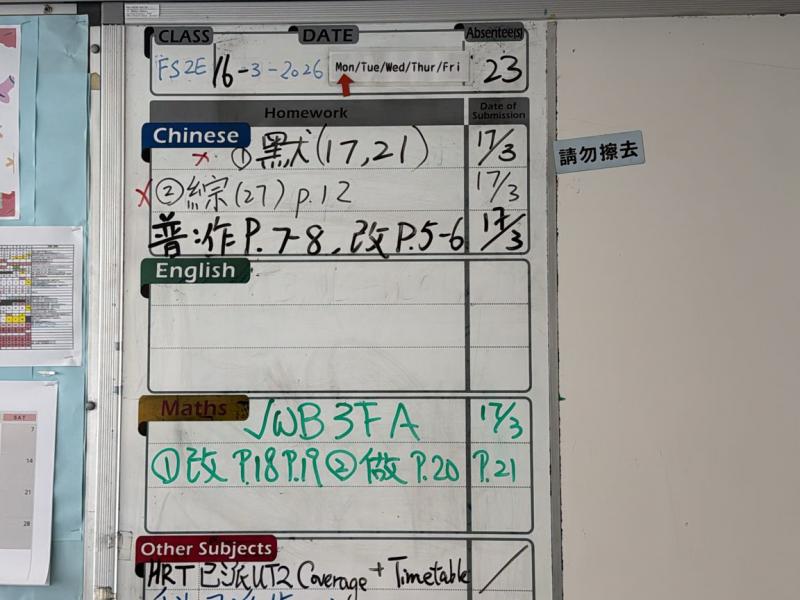 CLASS DATE Absentee(s)
FS2E 16-3-2026 Mon/Tue/Wed/Thur/Fri 23
Homework Date of Submission
Chinese
① 默(17,21) 17/3
② 綜(27) p.12 17/3
普:作P.7-8、改P.5-6 17/3
請勿擦去
English
Maths
√WB 3FA 17/3
①改 P.18 P.19 ②做 P.20 P.21
Other Subjects
HRT 已派UT2 Coverage + Timetable
SAT
7
14
21
28